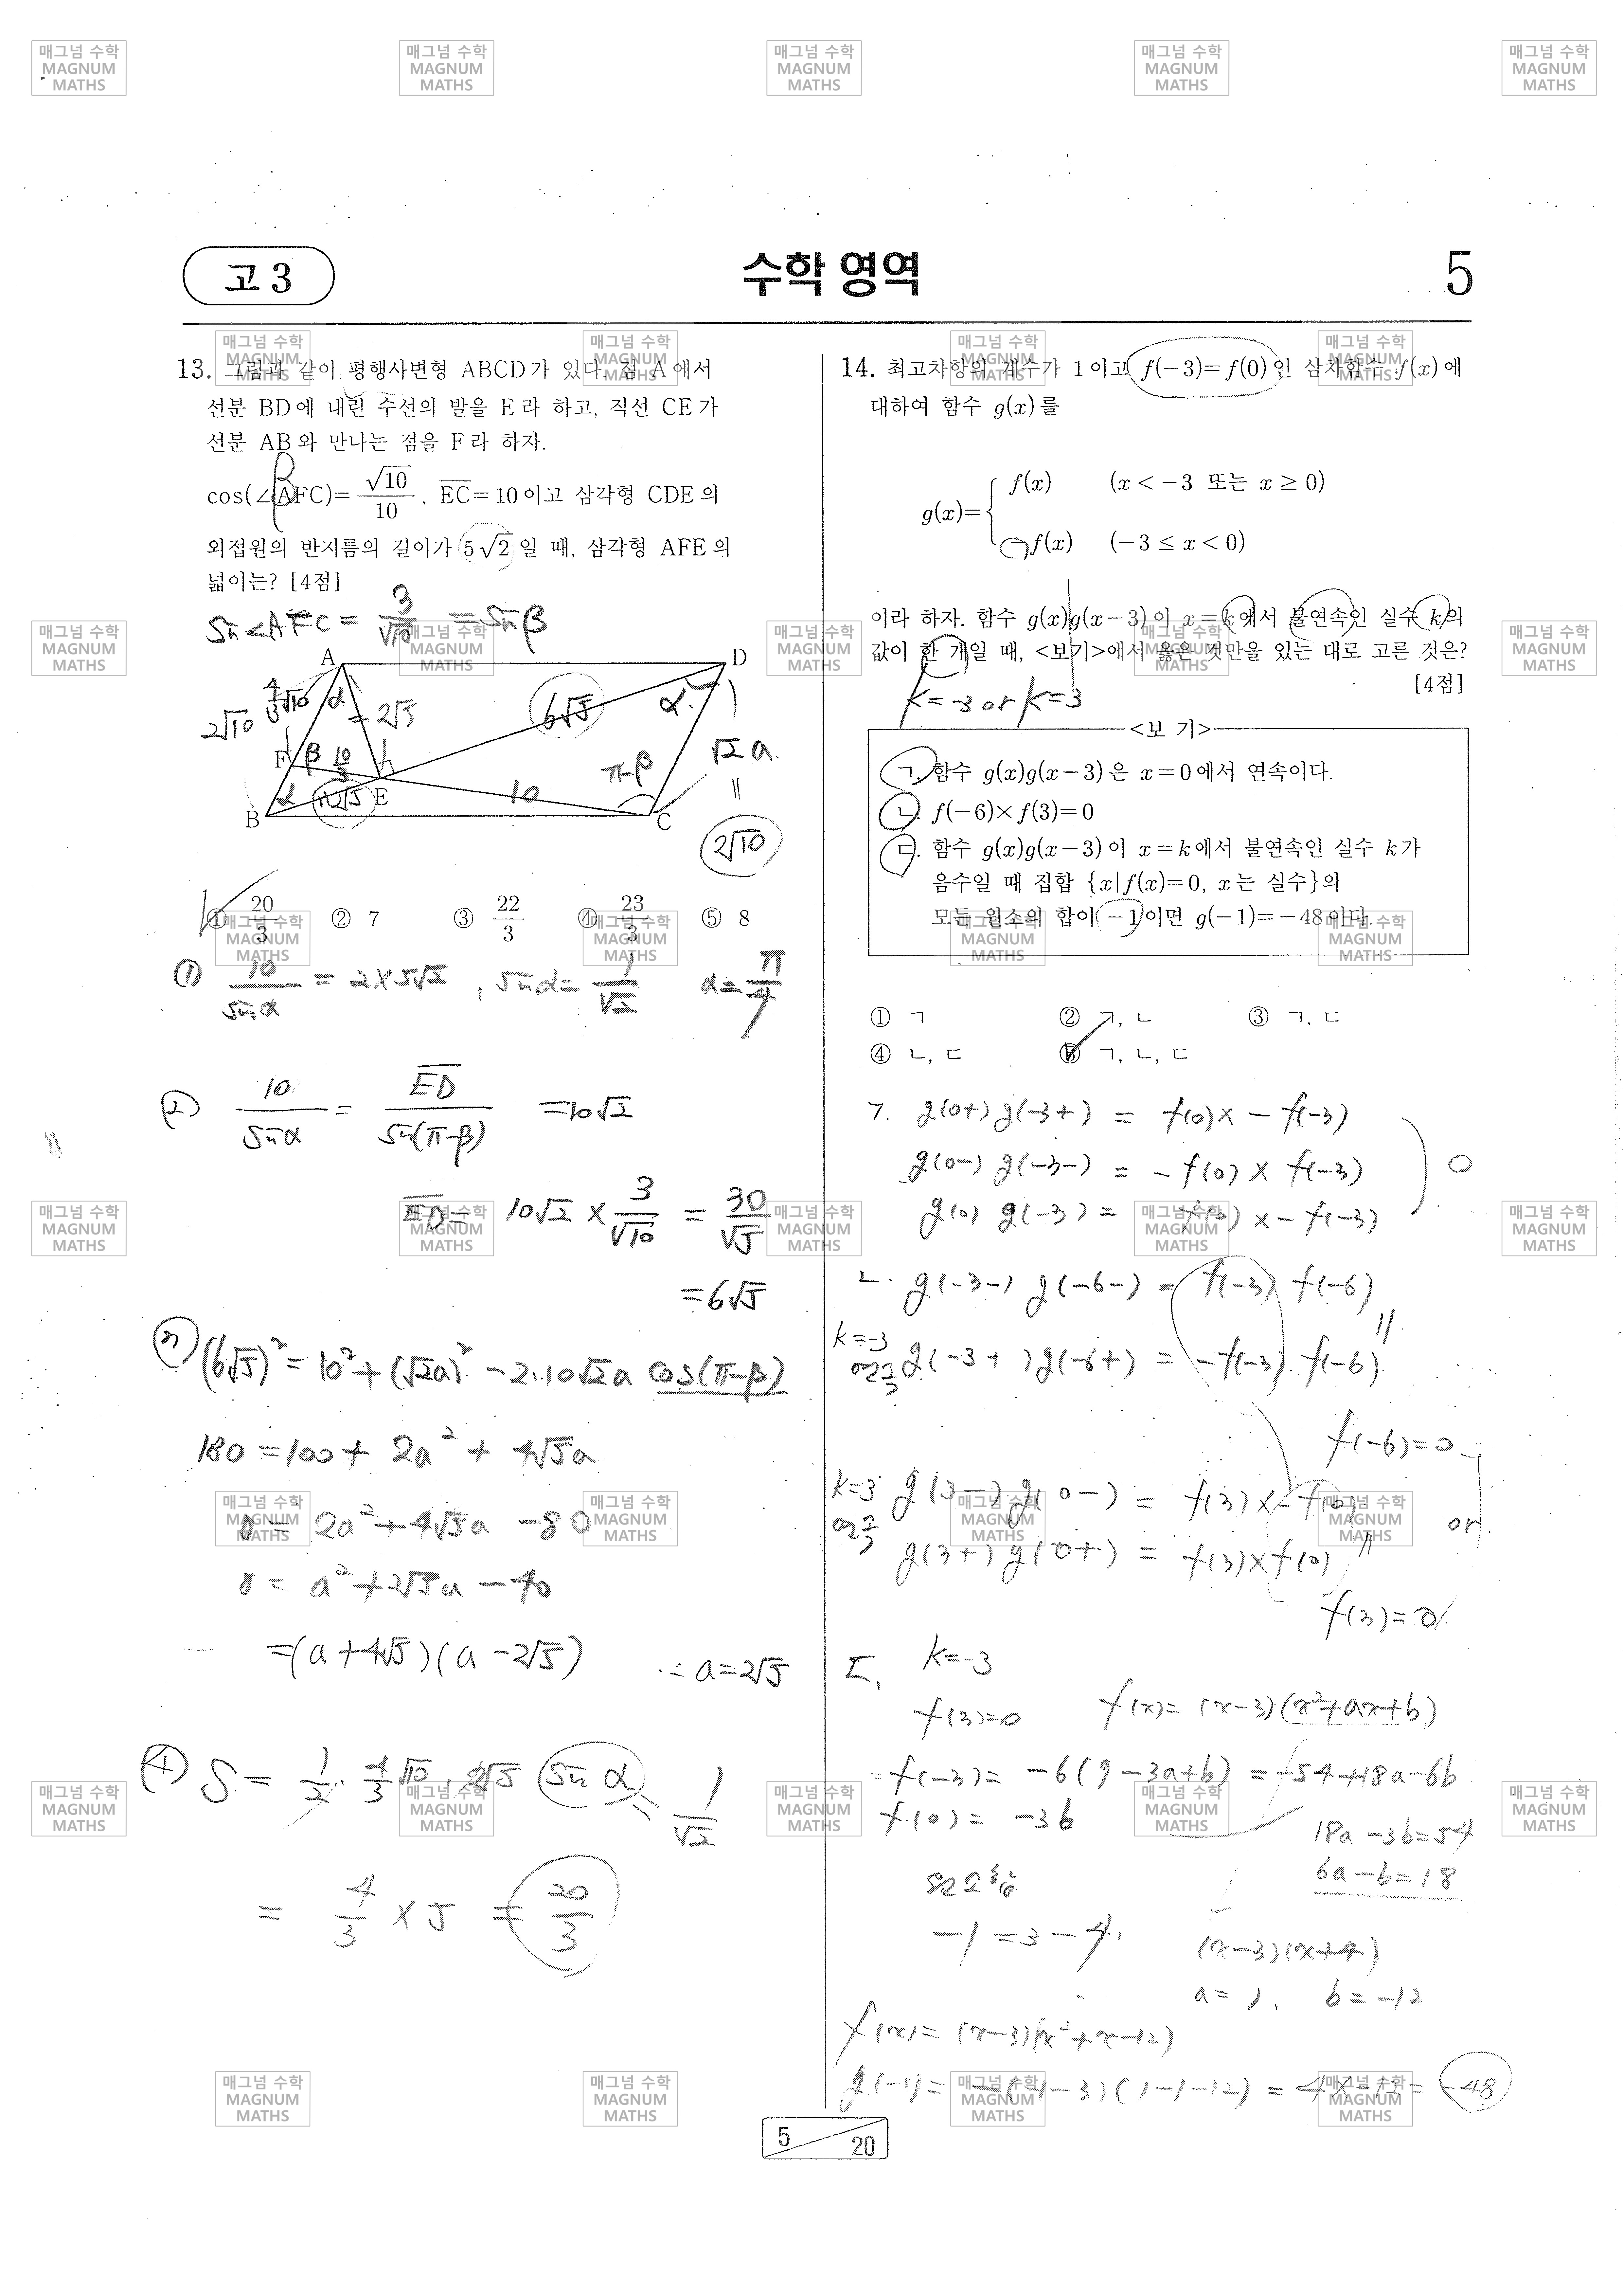 고 3
수학 영역
5
13. 그림과 같이 평행사변형 ABCD가 있다. 점 A에서
선분 BD에 내린 수선의 발을 E라 하고, 직선 CE가
선분 AB와 만나는 점을 F라 하자.
cos(∠AFC)=√10/10, EC=10이고 삼각형 CDE의
외접원의 반지름의 길이가 5√2일 때, 삼각형 AFE의
넓이는? [4점]
β
sin∠AFC = 3/√10 = sinβ
A
D
4/3√10
α
2√10
= 2√5
6√5
α
√2 a
F
β
10/3
π-β
॥
α
E
10
B
C
2√10
① 20/3 ② 7 ③ 22/3 ④ 23/3 ⑤ 8
① 10/sinα = 2×5√2 , sinα = 1/√2 α = π/4
② 10/sinα = ED/sin(π-β) = 10√2
ED = 10√2 × 3/√10 = 30/√5
= 6√5
(6√5)² = 10² + (√2a)² - 2·10√2a cos(π-β)
180 = 100 + 2a² + 4√5a
0 = 2a² + 4√5a - 80
0 = a² + 2√5a - 40
= (a + 4√5)(a - 2√5) ∴ a = 2√5
④ S = 1/2 · 4/3√10 · 2√5 sin α = 1/√2
= 4/3 × 5 = 20/3
14. 최고차항의 계수가 1이고 f(-3)=f(0)인 삼차함수 f(x)에
대하여 함수 g(x)를
g(x)= { f(x) (x < -3 또는 x ≥ 0)
-f(x) (-3 ≤ x < 0)
이라 하자. 함수 g(x)g(x-3)이 x=k에서 불연속인 실수 k의
값이 한 개일 때, <보기>에서 옳은 것만을 있는 대로 고른 것은?
[4점]
k=-3 or k=3
<보 기>
ㄱ. 함수 g(x)g(x-3)은 x=0에서 연속이다.
ㄴ. f(-6)×f(3)=0
ㄷ. 함수 g(x)g(x-3)이 x=k에서 불연속인 실수 k가
음수일 때 집합 {x|f(x)=0, x는 실수}의
모든 원소의 합이 -1이면 g(-1)=-48이다.
① ㄱ ② ㄱ, ㄴ ③ ㄱ, ㄷ
④ ㄴ, ㄷ ⑤ ㄱ, ㄴ, ㄷ
ㄱ. g(0+)g(-3+) = f(0)×-f(-3)
g(0-)g(-3-) = -f(0)×f(-3) 0
g(0)g(-3) = f(0)×-f(-3)
ㄴ. g(-3-)g(-6-) = f(-3)f(-6)
k=-3
연속 g(-3+)g(-6+) = -f(-3)·f(-6)
f(-6)=0
k=3 g(3-)g(0-) = f(3)×-f(0)
연속 or
g(3+)g(0+) = f(3)×f(0)
f(3)=0
ㄷ. k=-3
f(3)=0 f(x)=(x-3)(x²+ax+b)
f(-3)= -6(9-3a+b) = -54+18a-6b
f(0)= -3b
18a-3b=54
6a-b=18
원소합
-1=3-4.
(x-3)(x+4)
a=1, b=-12
f(x)=(x-3)(x²+x-12)
g(-1)= -(-1-3)(1-1-12) = 4×-12= -48
5
20
매그넘 수학
MAGNUM
MATHS